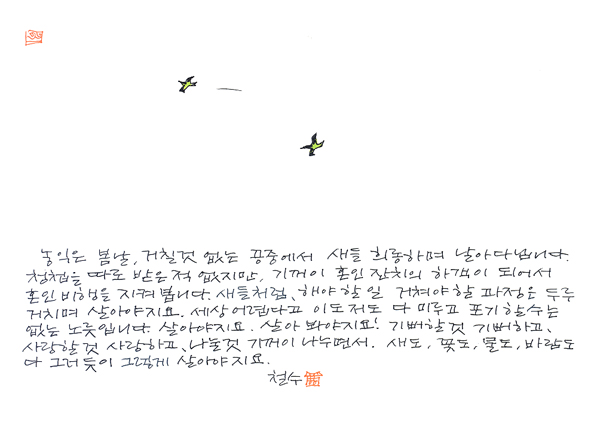 농익은 봄날, 거칠것 없는 공중에서 새들 희롱하며 날아다닙니다.
청첩을 따로 받은 적 없지만, 기꺼이 혼인 잔치의 하객이 되어서
혼인 비행을 지켜 봅니다. 새들처럼, 해야 할 일 거쳐야 할 과정은 두루
거치며 살아야지요. 세상 어렵다고 이도저도 다 미루고 포기할수는
없는 노릇입니다. 살아야지요. 살아 봐야지요! 기뻐할것 기뻐하고,
사랑할것 사랑하고, 나눌것 기꺼이 나누면서. 새도, 꽃도, 물도, 바람도
다 그러듯이 그렇게 살아야지요.
철수